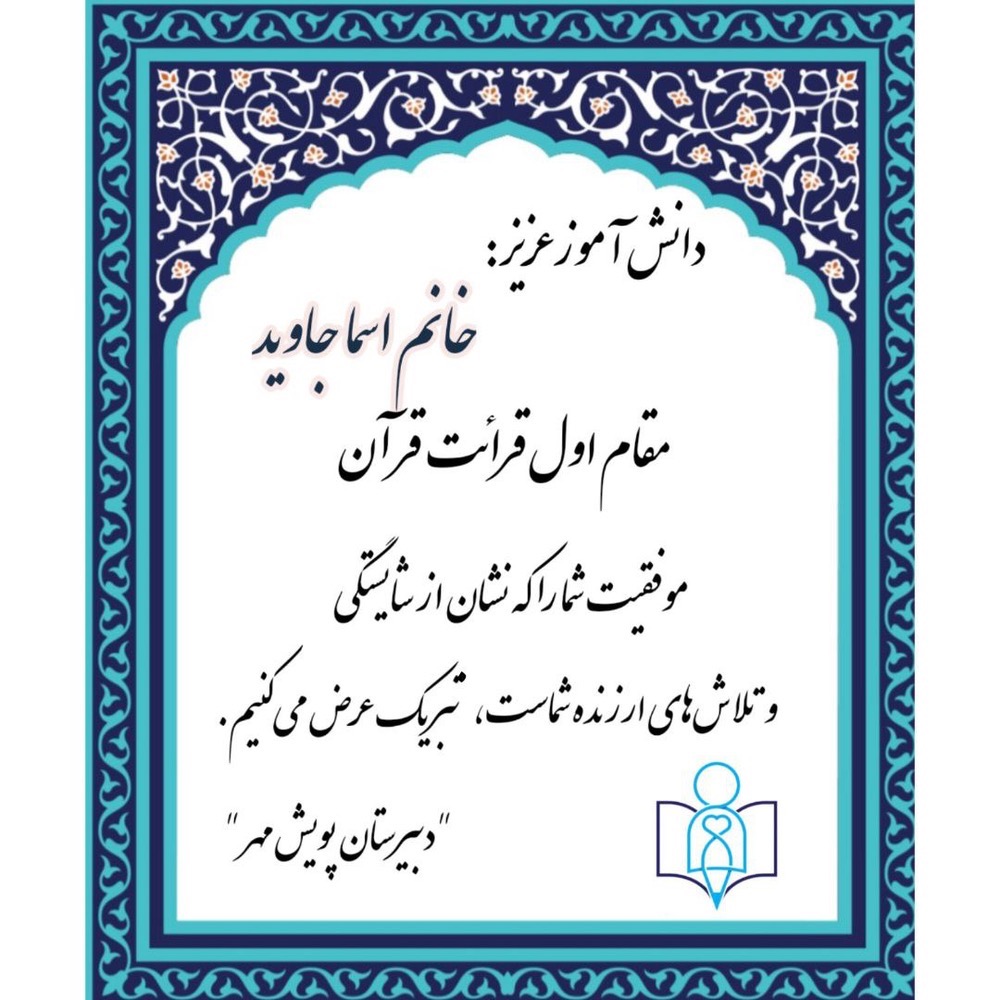 دانش آموز عزیز:
خانم اسما جاوید
مقام اول قرائت قرآن
موفقیت شما را که نشان از شایستگی
و تلاش های ارزنده شماست، تبریک عرض می کنیم.
"دبیرستان پویش مهر"